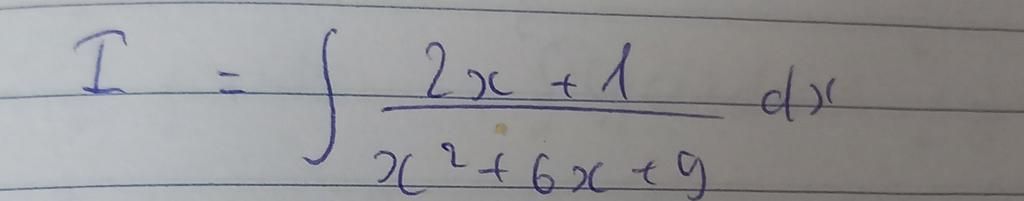 I = ∫ (2x + 1)/(x² + 6x + 9) dx